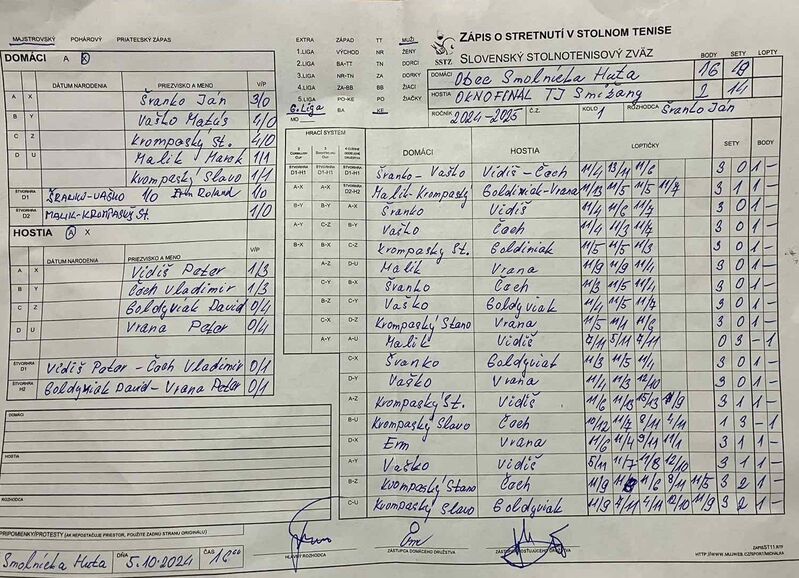 MAJSTROVSKÝ POHÁROVÝ PRIATEĽSKÝ ZÁPAS
DOMÁCI A X
DÁTUM NARODENIA PRIEZVISKO A MENO V/P
A X Švanko Ján 3/0
B Y Vaško Matúš 4/0
C Z Krompaský St. 4/0
D U Malik Marek 1/1
Krompaský Slavo 1/1
ŠTVORHRA D1 ŠVANKO-VAŠKO 1/0 Erm Roland 1/0
ŠTVORHRA D2 MALIK-KROMPASKÝ ST. 1/0
HOSTIA A X
DÁTUM NARODENIA PRIEZVISKO A MENO V/P
A X Vidiš Peter 1/3
B Y Čach Vladimír 1/3
C Z Goldyviak David 0/4
D U Vrana Peter 0/4
ŠTVORHRA D1 Vidiš Peter - Čach Vladimir 0/1
ŠTVORHRA H2 Goldyviak David - Vrana Peter 0/1
DOMÁCI
HOSTIA
ROZHODCA
PRIPOMIENKY/PROTESTY (AK NEPOSTAČUJE PRIESTOR, POUŽITE ZADNÚ STRANU ORIGINÁLU)
Smolnícka Huta DŇA 5.10.2024 ČAS 16⁰⁰
EXTRA ZÁPAD TT MUŽI
1.LIGA VÝCHOD NR ŽENY
2.LIGA BA-TT TN DORCI
3.LIGA NR-TN ZA DORKY
4.LIGA ZA-BB BB ŽIACI
5.LIGA PO-KE PO ŽIAČKY
6.Liga BA KE
MO
SSTZ
ZÁPIS O STRETNUTÍ V STOLNOM TENISE
SLOVENSKÝ STOLNOTENISOVÝ ZVÄZ
BODY SETY LOPTY
DOMÁCI Obec Smolnícka Huta 16
HOSTIA OKNOFINAL TJ Smižany 2 14
ROČNÍK 2024-2025 Č.Z. KOLO 1 ROZHODCA Švanko Ján
HRACÍ SYSTÉM DOMÁCI HOSTIA LOPTIČKY SETY BODY
D1-H1 D1-H1 D1-H1 Švanko - Vaško Vidiš - Čach 11/4 13/11 11/6 3 0 1 -
A-X A-X D2-H2 Malik-Krompaský Goldiniak-Vrana 11/13 11/5 11/5 11/7 3 1 1 -
B-Y B-Y A-X Švanko Vidiš 11/4 11/6 11/7 3 0 1 -
A-Y C-Z B-Y Vaško Čach 11/4 11/3 11/7 3 0 1 -
B-X B-X C-Z Krompaský St. Goldiniak 11/5 11/5 11/3 3 0 1 -
A-Z D-U Malik Vrana 11/9 11/9 11/4 3 0 1 -
C-Y B-X Švanko Čach 11/3 11/5 11/4 3 0 1 -
B-Z C-Y Vaško Goldyviak 11/4 11/5 11/7 3 0 1 -
C-X D-Z Krompaský Stano Vrana 11/5 11/1 11/6 3 0 1 -
A-Y A-U Malik Vidiš 7/11 5/11 7/11 0 3 - 1
C-X Švanko Goldyviak 11/3 11/5 11/4 3 0 1 -
D-Y Vaško Vrana 11/4 11/3 12/10 3 0 1 -
A-Z Krompaský St. Vidiš 11/6 11/13 15/13 11/9 3 1 1 -
B-U Krompaský Slavo Čach 10/12 11/7 8/11 4/11 1 3 - 1
D-X Erm Vrana 11/6 11/4 9/11 11/1 3 1 1 -
A-Y Vaško Vidiš 5/11 11/7 11/8 12/10 3 1 1 -
B-Z Krompaský Stano Čach 11/9 11/6 8/11 11/5 3 2 1 -
C-U Krompaský Slavo Goldyviak 11/9 7/11 4/11 12/10 11/9 3 2 1 -
HLAVNÝ ROZHODCA ZÁSTUPCA DOMÁCEHO DRUŽSTVA ZÁSTUPCA HOSŤUJÚCEHO DRUŽSTVA
ZAPISST11.RTF
HTTP://WWW.MUJWEB.CZ/SPORT/MICHALKA